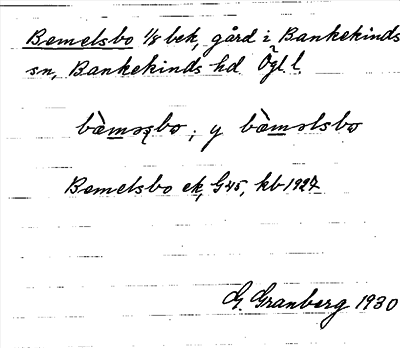 Bemelsbo 1/8 bek, gård i Bankekinds
sn, Bankekinds hd Ögl. l.
bo, y
Bemelsbo ek, G 45, kb 1927
G. Granberg 1930